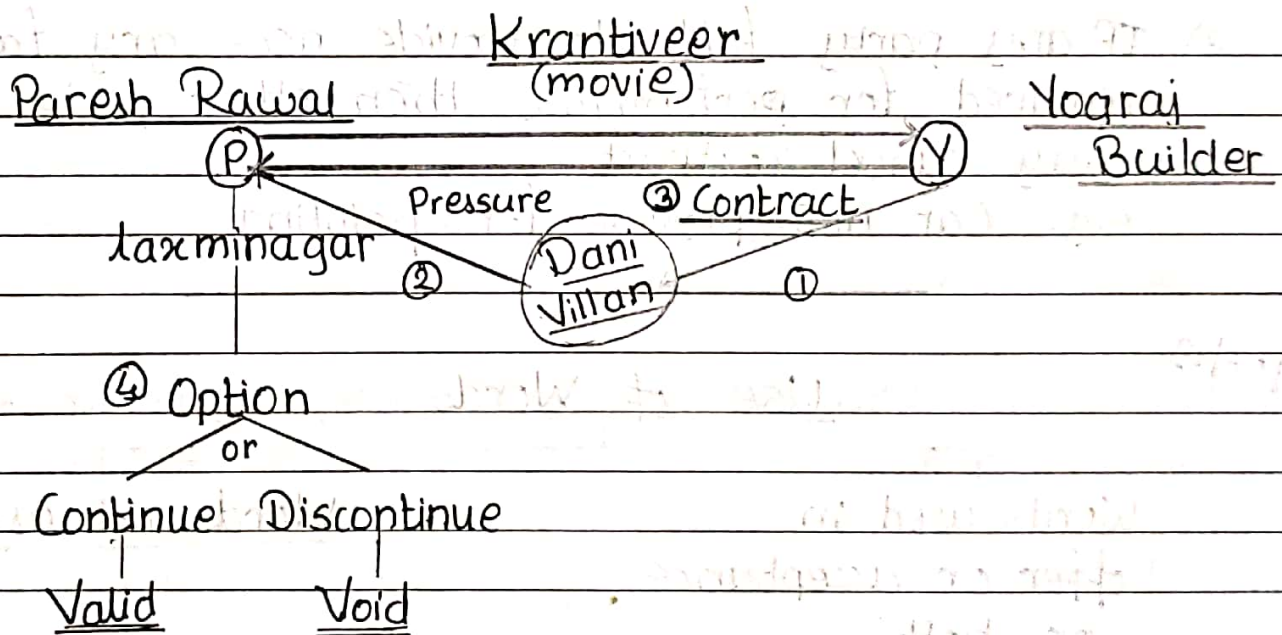 Krantiveer
(movie)
Paresh Rawal
Yograj
Builder
P
Y
Pressure
③ Contract
Laxminagar
②
Dani
Villan
①
④ Option
or
Continue Discontinue
Valid Void